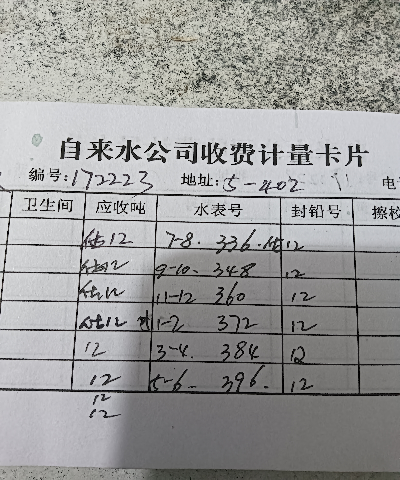 自来水公司收费计量卡片
编号:172223 地址:5-402 电
卫生间 应收吨 水表号 封铅号 擦校
估12 7-8. 336. 估12
估12 9-10. 348 12
估12 11-12 360 12
估12 1-2 372 12
12 3-4. 384 12
12 5-6. 396. 12
12
12